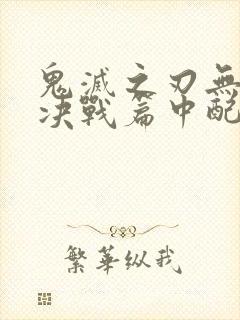 鬼滅之刃無
决戰篇中配
繁華纵我